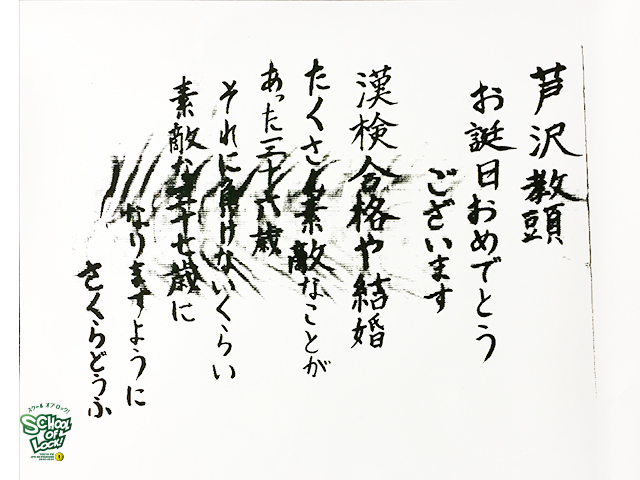 芦沢教頭
お誕生日おめでとう
ございます
漢検合格や結婚
たくさん素敵なことが
あった三十六歳
それに負けないくらい
素敵な三十七歳に
なりますように
さくらどうふ
スクール オブ ロック!
SCHOOL
OF
LOCK!